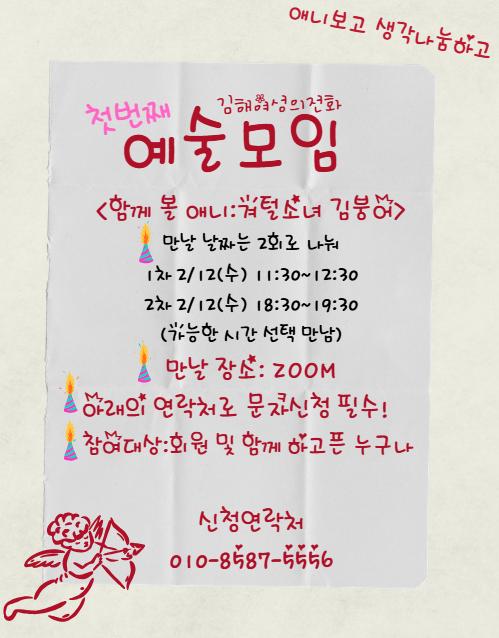 애니보고 생각나눔하고
김해여성의전화
첫번째
예술모임
<함께 볼 애니:겨털소녀 김붕어>
만날 날짜는 2회로 나눠
1차 2/12(수) 11:30~12:30
2차 2/12(수) 18:30~19:30
(가능한 시간 선택 만남)
만날 장소: ZOOM
아래의 연락처로 문자신청 필수!
참여대상:회원 및 함께 하고픈 누구나
신청연락처
010-8587-5556